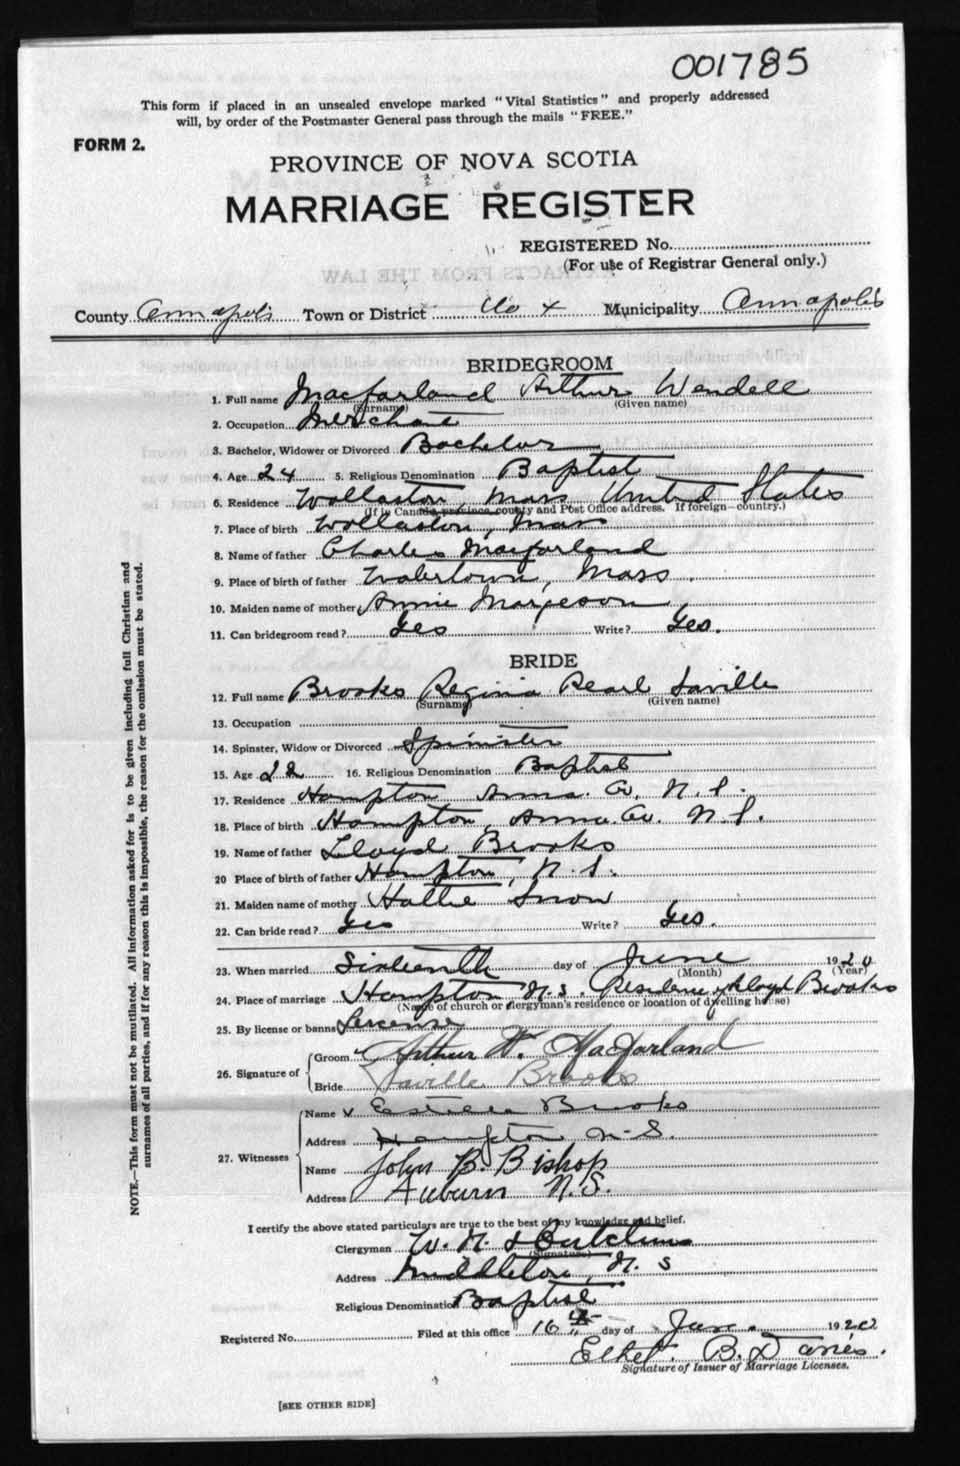 001785
This form if placed in an unsealed envelope marked "Vital Statistics" and properly addressed
will, by order of the Postmaster General pass through the mails "FREE."
FORM 2.
PROVINCE OF NOVA SCOTIA
MARRIAGE REGISTER
REGISTERED No.
(For use of Registrar General only.)
County Annapolis Town or District Municipality Annapolis
BRIDEGROOM
1. Full name Macfarland Arthur Wendell
(Surname) (Given name)
2. Occupation Merchant
3. Bachelor, Widower or Divorced Bachelor
4. Age 24 5. Religious Denomination Baptist
6. Residence Wollaston, Mass United States
(If in Canada province, county and Post Office address. If foreign—country.)
7. Place of birth Wollaston, Mass
8. Name of father Charles Macfarland
9. Place of birth of father Watertown, Mass.
10. Maiden name of mother Annie Margeson
11. Can bridegroom read? Yes Write? Yes.
BRIDE
12. Full name Brooks Regina Pearl Saville
(Surname) (Given name)
13. Occupation
14. Spinster, Widow or Divorced Spinster
15. Age 22 16. Religious Denomination Baptist
17. Residence Hampton Anna. Co. N. S.
18. Place of birth Hampton, Anna. Co. N. S.
19. Name of father Lloyd Brooks
20 Place of birth of father Hampton, N. S.
21. Maiden name of mother Hattie Snow
22. Can bride read? Yes Write? Yes.
23. When married Sixteenth day of June 1920
(Month) (Year)
24. Place of marriage Hampton N.S. Residence of Lloyd Brooks
(Name of church or clergyman's residence or location of dwelling house)
25. By license or banns License
26. Signature of
Groom Arthur W. MacFarland
Bride Saville Brooks
27. Witnesses
Name x Estella Brooks
Address Hampton, N.S.
Name John B. Bishop
Address Auburn N.S.
I certify the above stated particulars are true to the best of my knowledge and belief.
Clergyman W. H.
(Signature)
Address Middleton, N. S
Religious Denomination Baptist
Registered No. Filed at this office 16 day of June 1920
Ethel B. Davies.
Signature of Issuer of Marriage Licenses.
[SEE OTHER SIDE]
NOTE.—This form must not be mutilated. All information asked for is to be given including full Christian and
surnames of all parties, and if for any reason this is impossible, the reason for the omission must be stated.